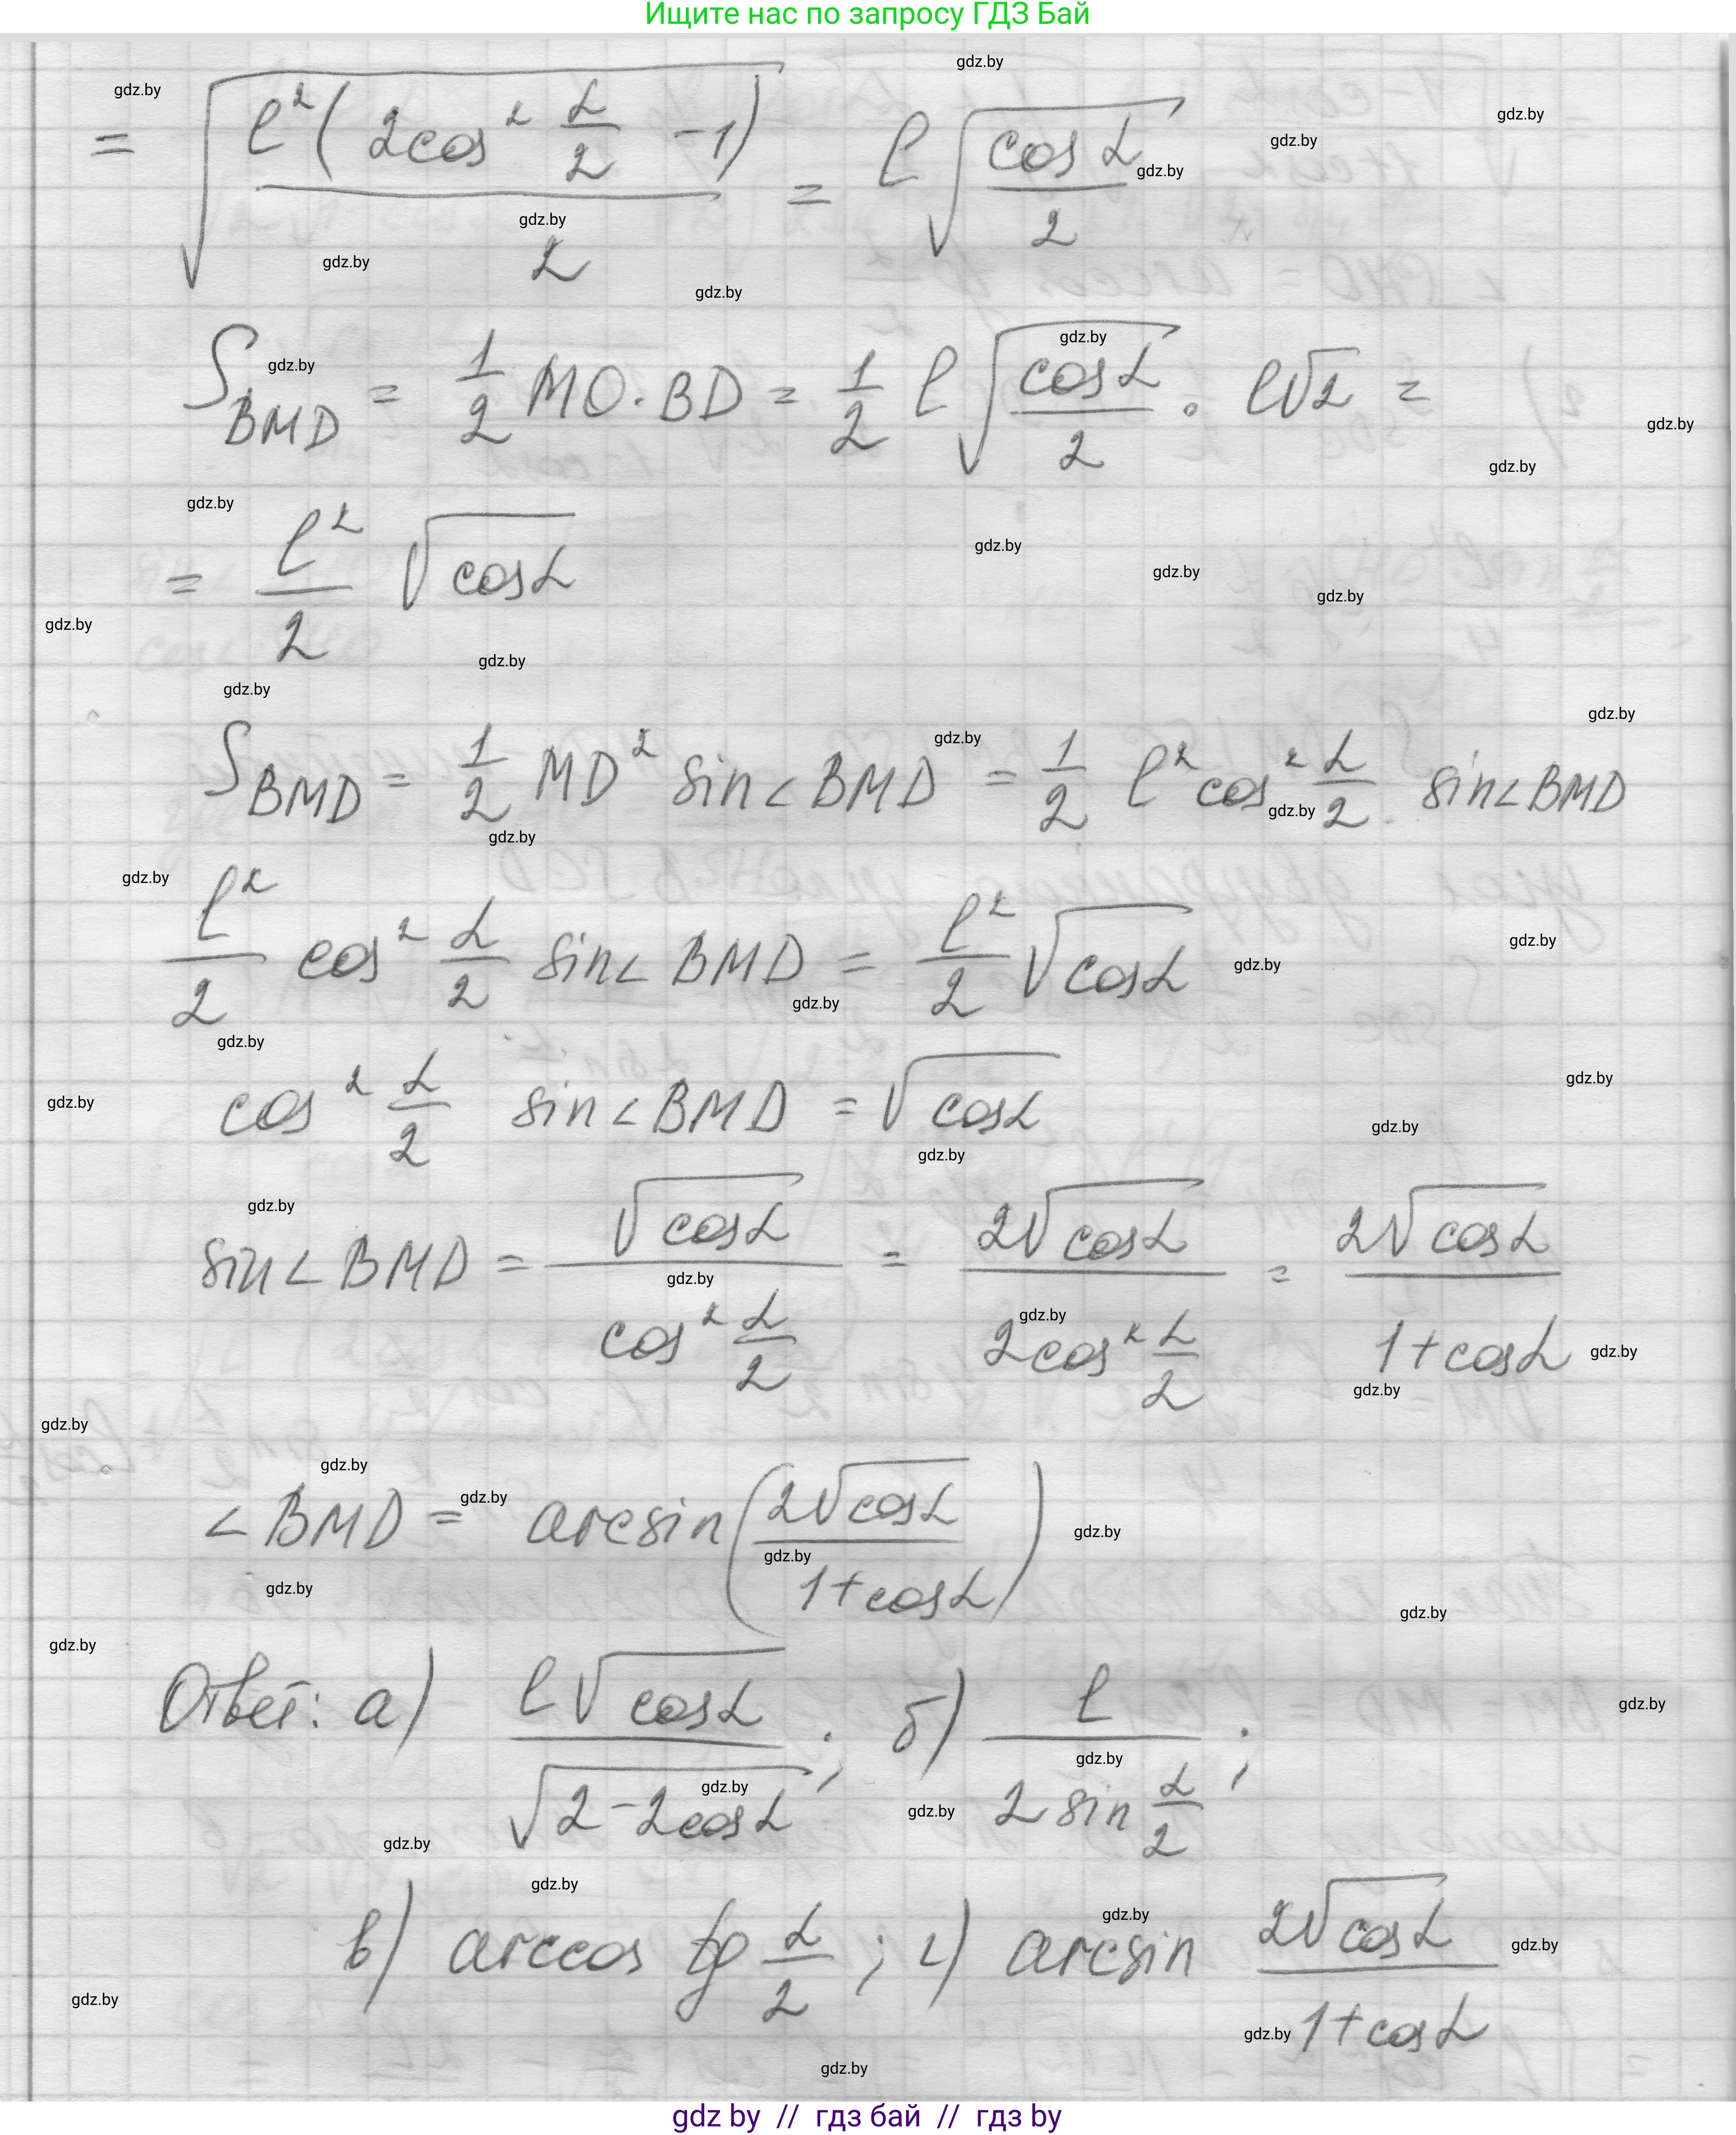 Ищите нас по запросу ГДЗ Бай
= √(l²(2cos² α/2 − 1)/2) = l√(cosα/2)
S_BMD = 1/2 MO · BD = 1/2 l√(cosα/2) · l√2 =
= l²/2 √cosα
S_BMD = 1/2 MD² sin∠BMD = 1/2 l² cos² α/2 · sin∠BMD
l²/2 cos² α/2 sin∠BMD = l²/2 √cosα
cos² α/2 sin∠BMD = √cosα
sin∠BMD = √cosα/(cos² α/2) = 2√cosα/(2cos² α/2) = 2√cosα/(1+cosα)
∠BMD = arcsin(2√cosα/(1+cosα))
Ответ: а) l√cosα/√(2−2cosα); б) l/(2 sin α/2);
в) arccos tg α/2; г) arcsin 2√cosα/(1+cosα)
gdz by // гдз бай // гдз by